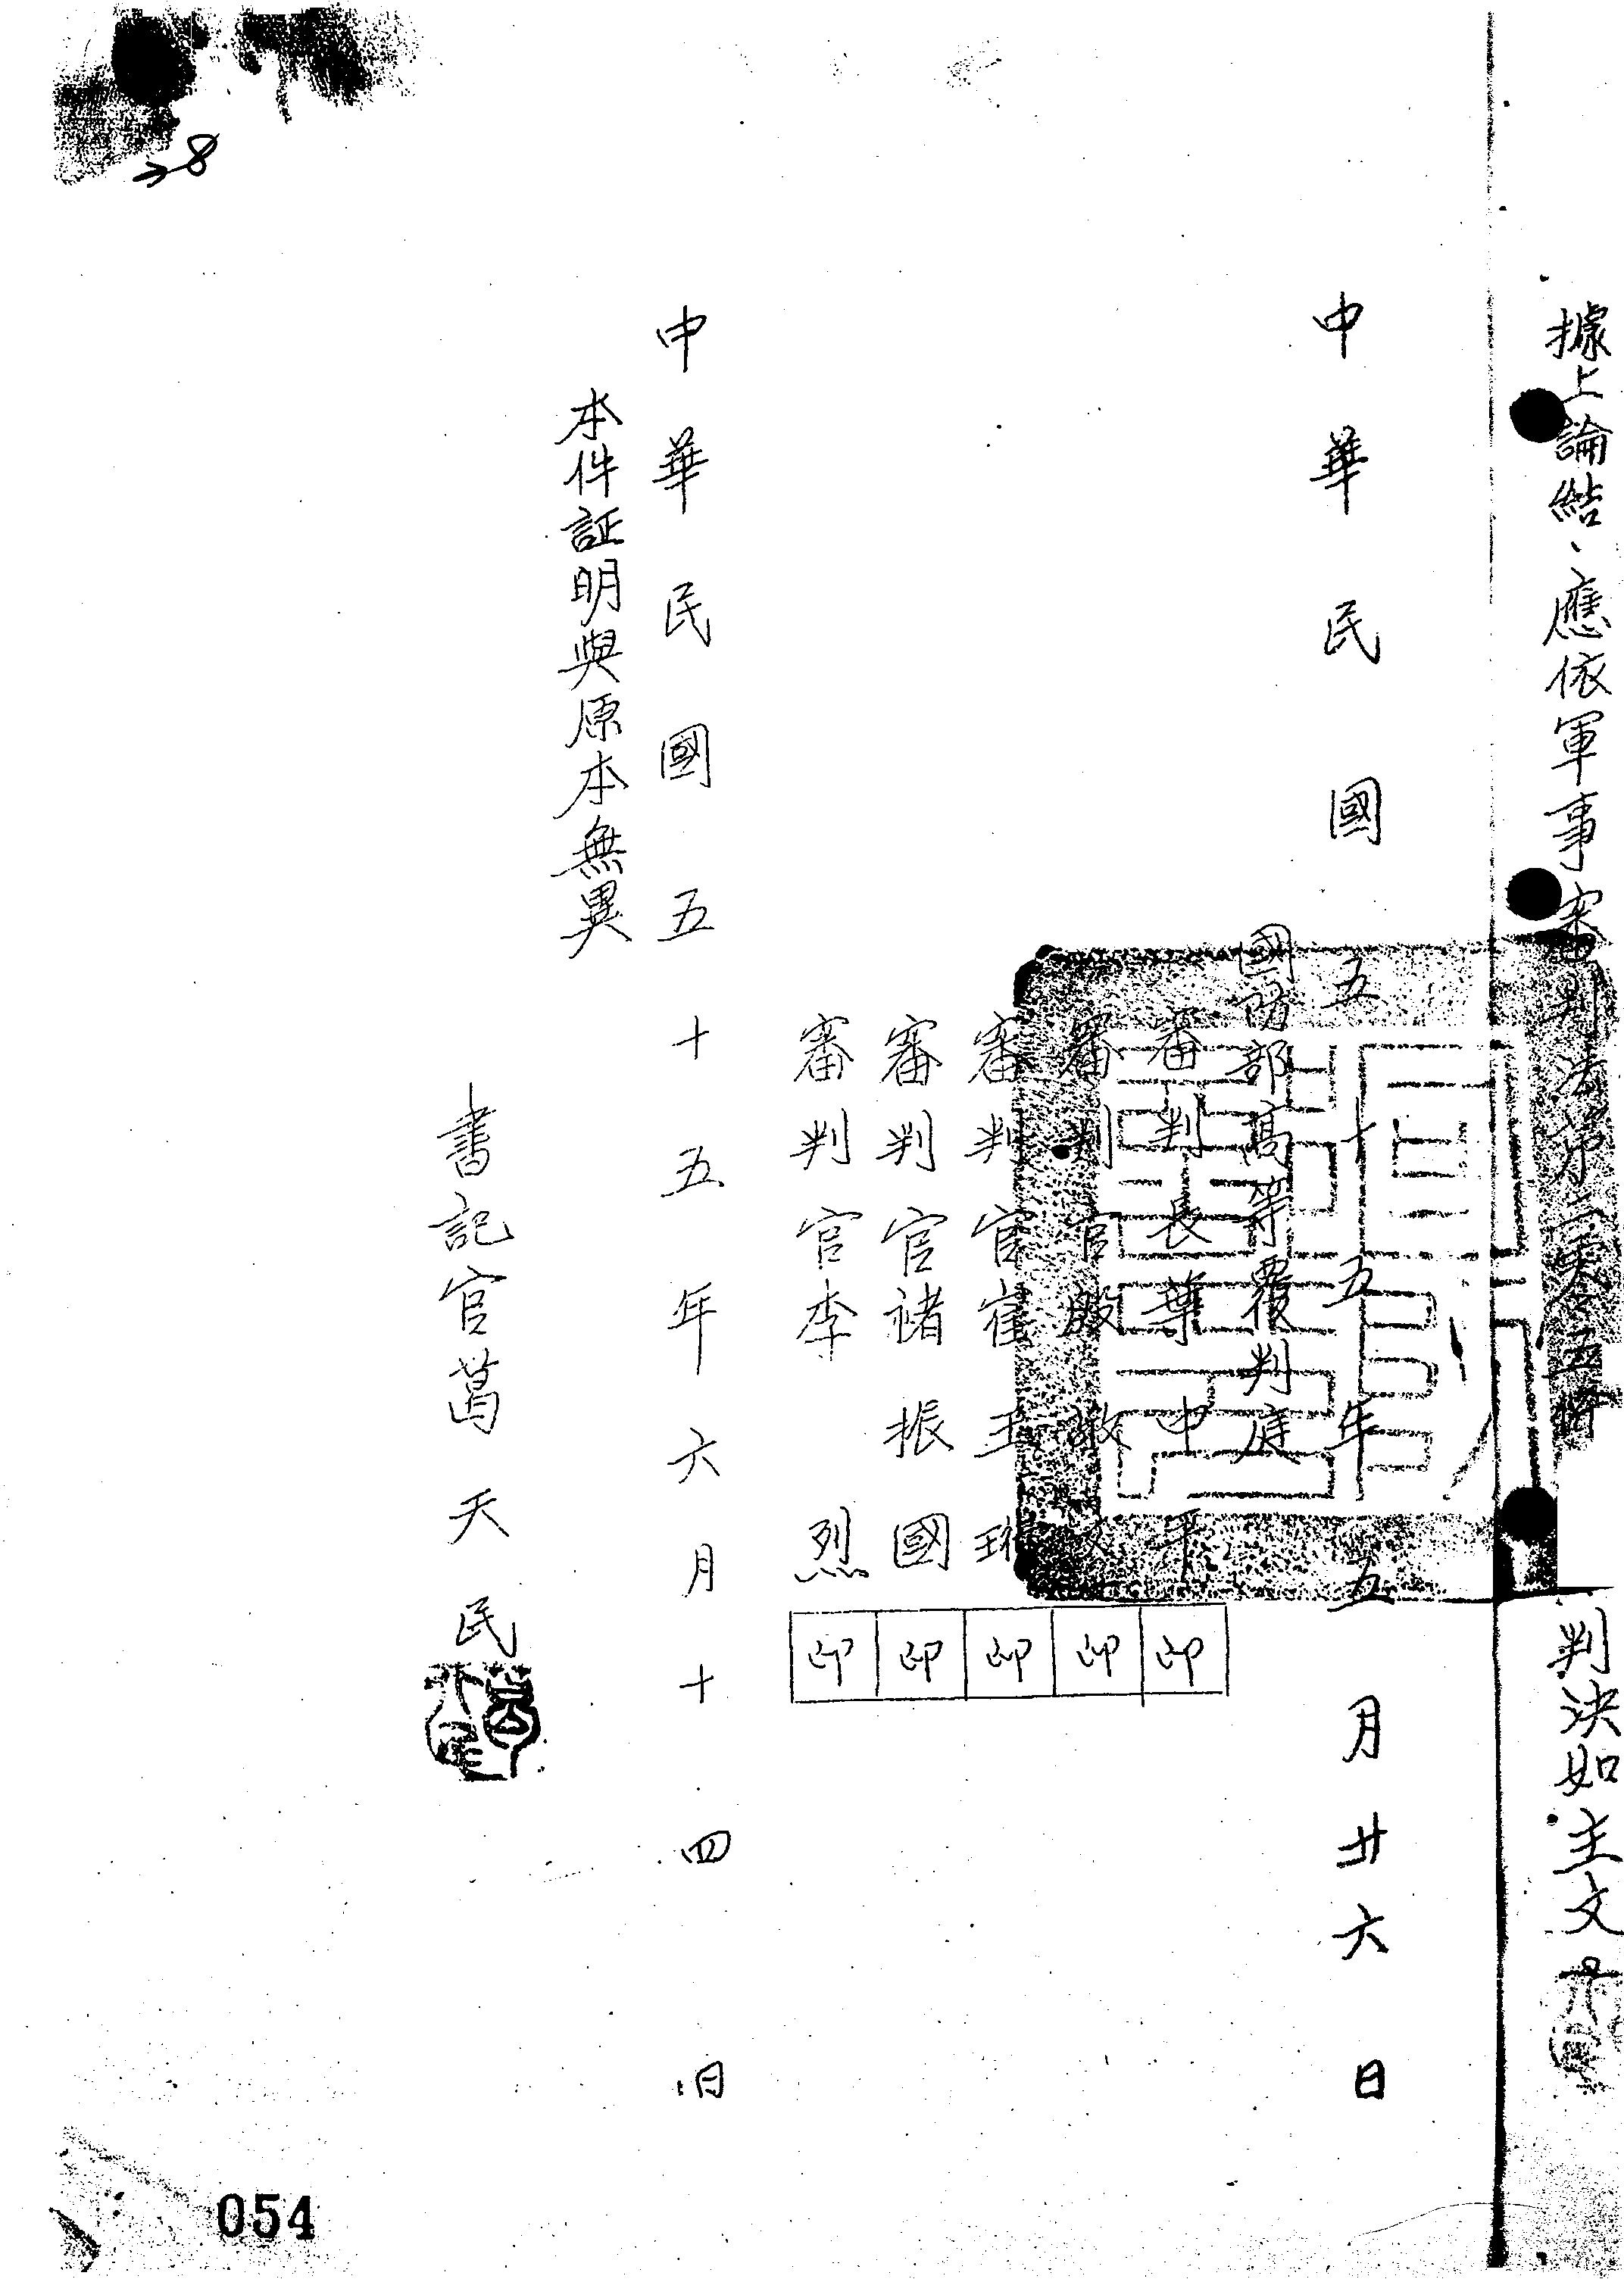 據上論結、應依軍事審判法第二零五條 判決如主文
中華民國五十五年五月廿六日
國防部高等覆判庭
審判長葉中平 印
審判官殷敬文 印
審判官崔玉琳 印
審判官褚振國 印
審判官李烈 印
中華民國五十五年六月十四日
本件証明與原本無異
書記官葛天民
28
054